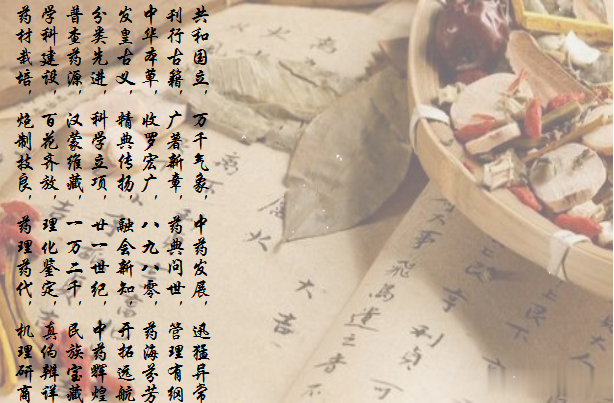 共和国立,万千气象,中药发展,迅猛异常
刊行古籍,广著新章,药典问世,管理有纲
中华本草,收罗宏广,八九八零,药海芬芳
发皇古义,精典传扬,融会新知,开拓远航
分类先进,科学立项,廿一世纪,中药辉煌
普查药源,汉蒙维藏,一万二千,民族宝藏
学科建设,百花齐放,理化鉴定,真伪辨详
药材栽培,炮制技良,药理药代,机理研商
亨利貞可
大事飛鳥遺之音不
大吉